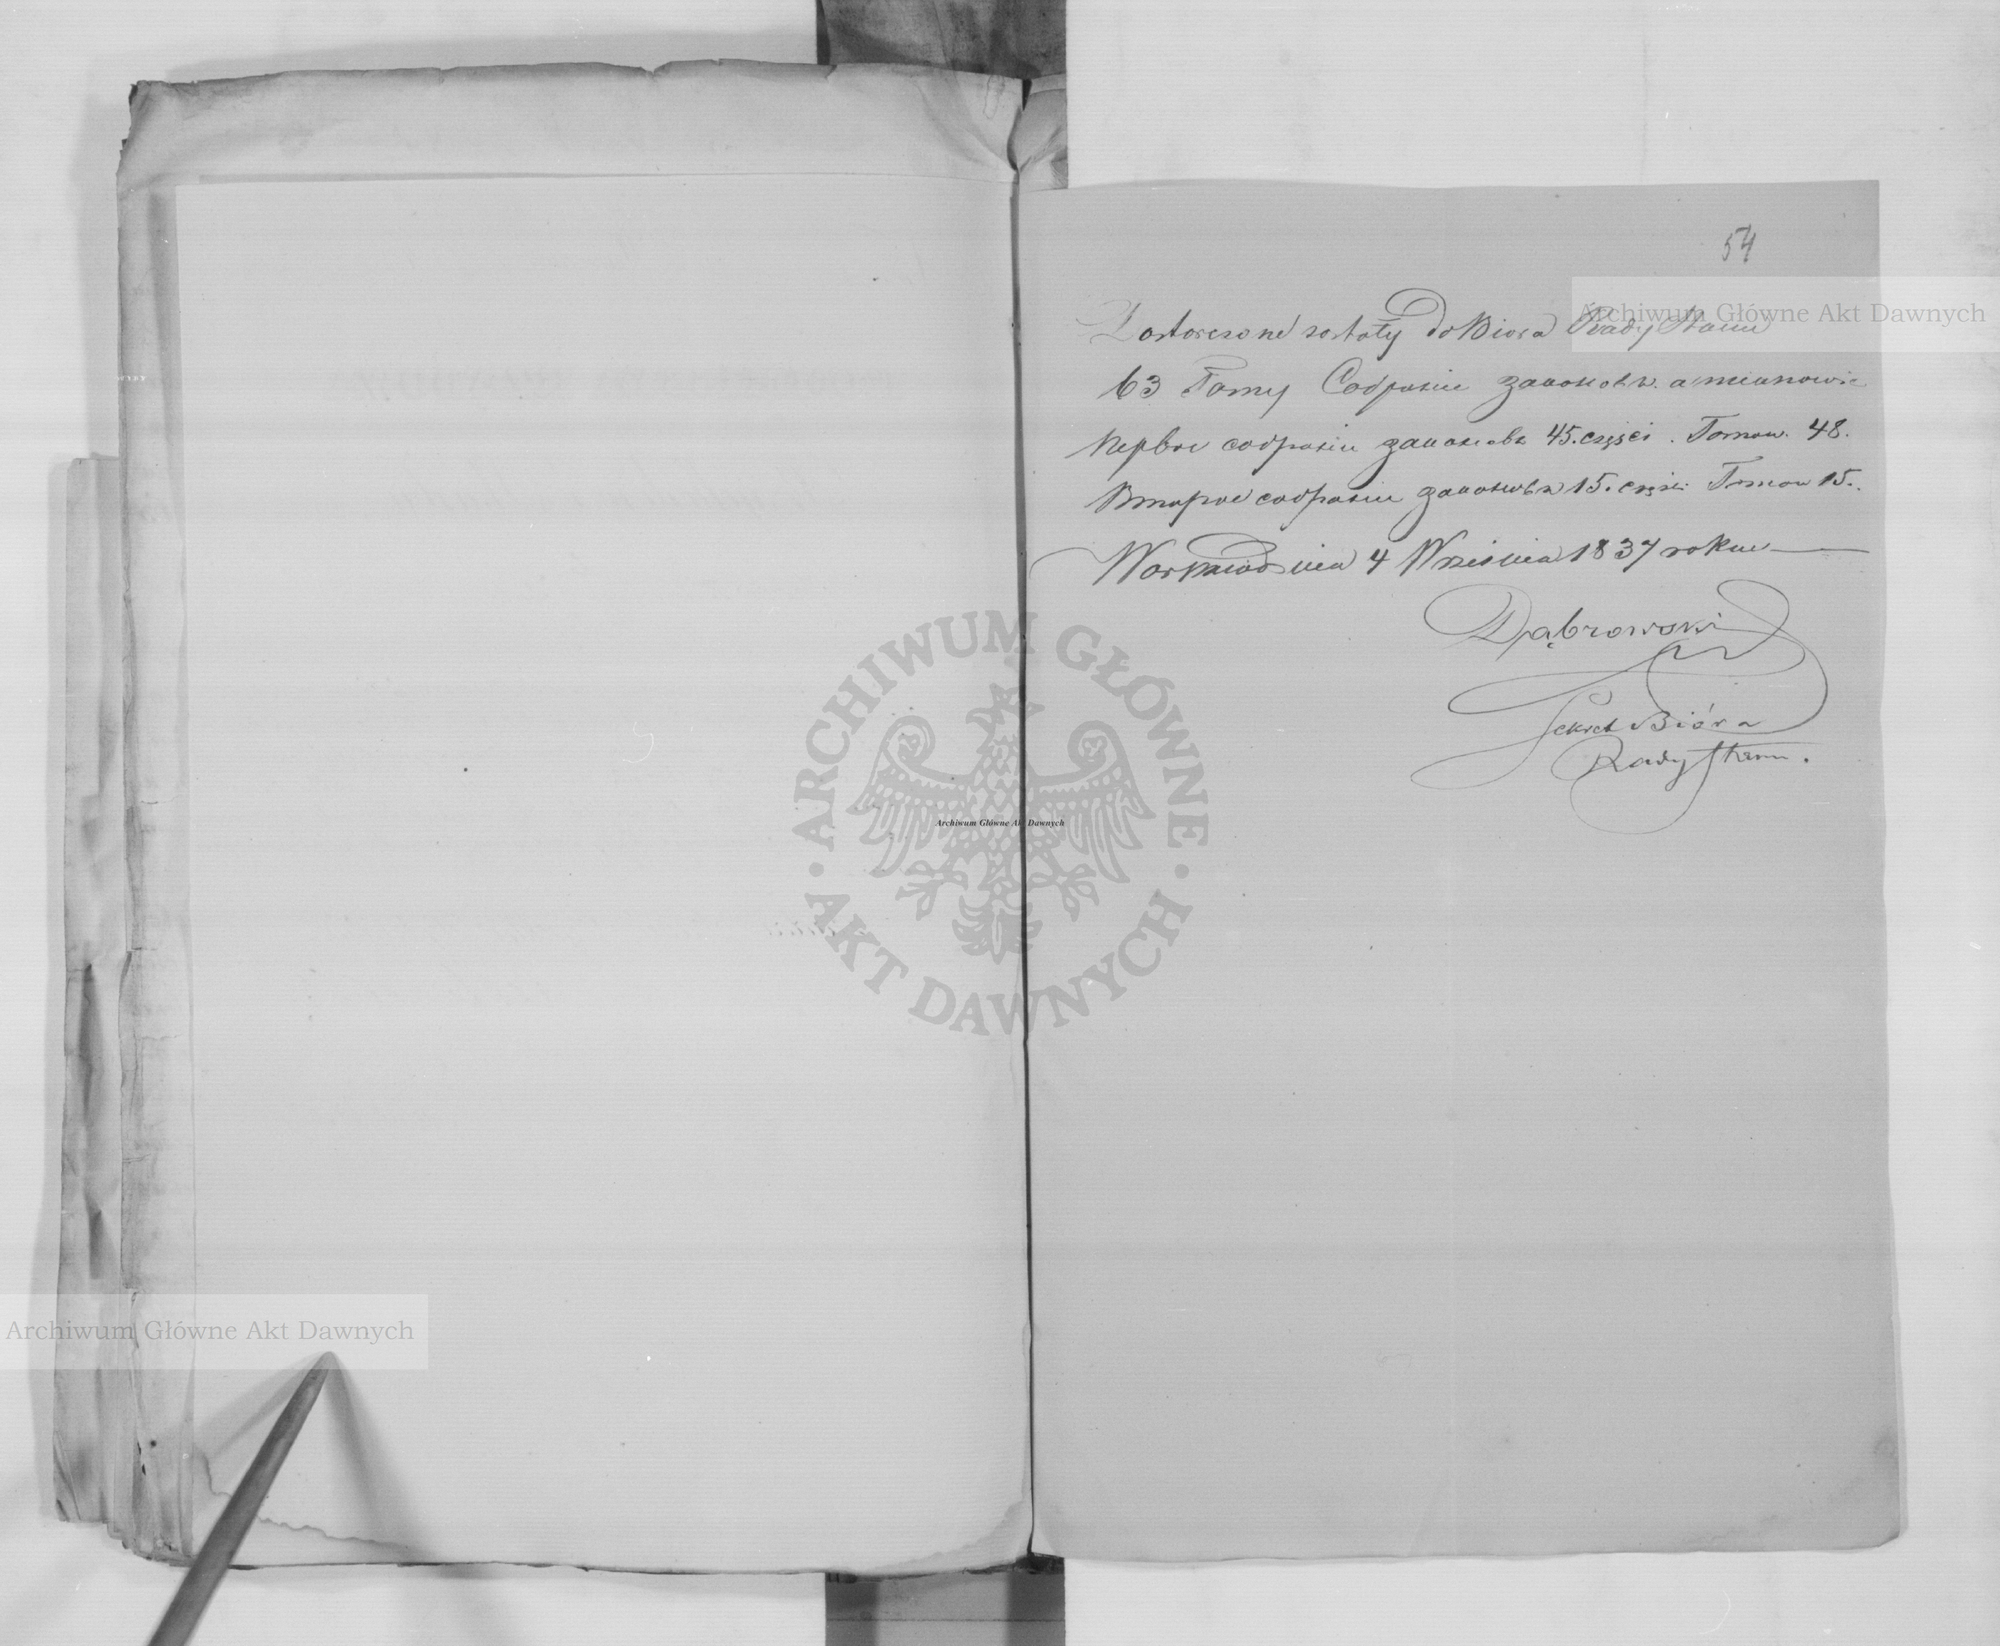 54
Dostarczone zostały do Biora Rady Stanu
63 Tomy Собранiе законовъ. a mianowicie
Первое собранiе законовъ 45. części. Tomow. 48.
Второе собранiе законовъ 15. części Tomow 15.
Warszawa dnia 4 Września 1837 roku
Dąbrowski
Sekret Bióra
Rady Stanu.
Archiwum Główne Akt Dawnych
ARCHIWUM GŁÓWNE AKT DAWNYCH
Archiwum Główne Akt Dawnych
Archiwum Główne Akt Dawnych